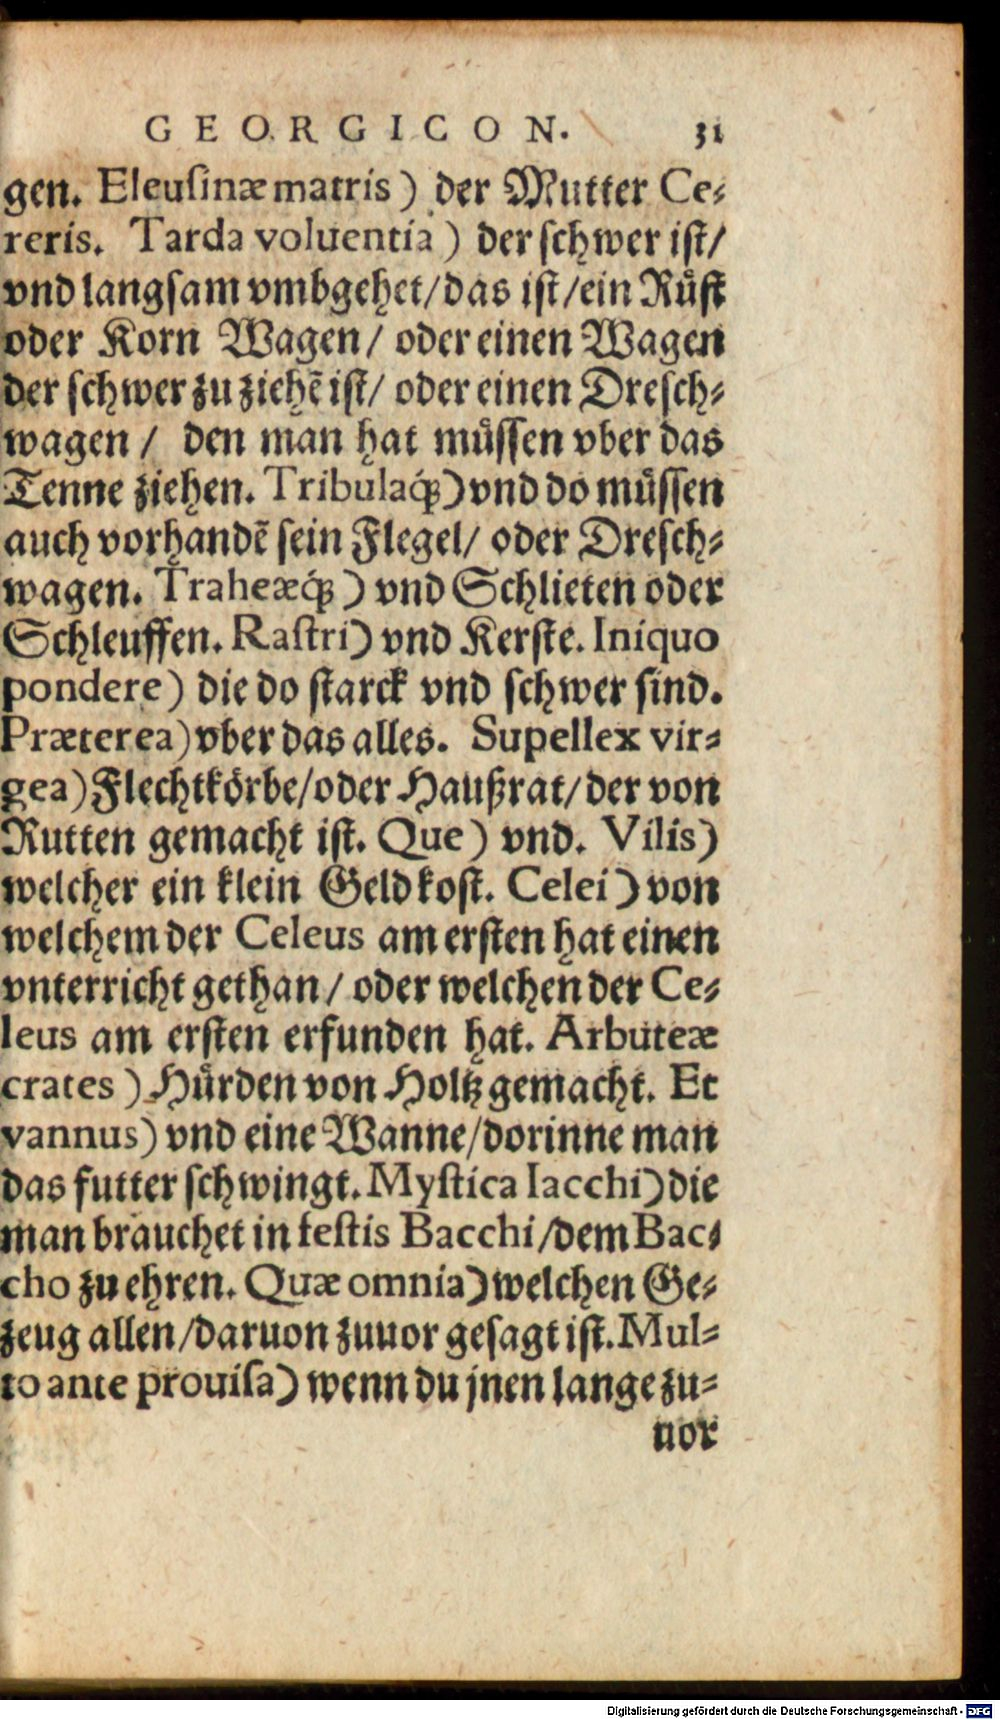 GEORGICON. 31
gen. Eleusinæ matris) der Mutter Ce-
reris. Tarda voluentia) der schwer ist/
vnd langsam vmbgehet/das ist/ein Ruͤst
oder Korn Wagen/ oder einen Wagen
der schwer zu ziehẽ ist/ oder einen Dresch-
wagen/ den man hat muͤssen vber das
Tenne ziehen. Tribulaq́;) vnd do muͤssen
auch vorhandẽ sein Flegel/ oder Dresch-
wagen. Traheæq́;) vnd Schlieten oder
Schleuffen. Rastri) vnd Kerste. Iniquo
pondere) die do starck vnd schwer sind.
Præterea) vber das alles. Supellex vir-
gea) Flechtkoͤrbe/oder Haußrat/der von
Rutten gemacht ist. Que) vnd. Vilis)
welcher ein klein Geld kost. Celei) von
welchem der Celeus am ersten hat einen
vnterricht gethan/ oder welchen der Ce-
leus am ersten erfunden hat. Arbuteæ
crates) Huͤrden von Holtz gemacht. Et
vannus) vnd eine Wanne/dorinne man
das futter schwingt. Mystica Iacchi) die
man brauchet in festis Bacchi/dem Bac-
cho zu ehren. Quæ omnia) welchen Ge-
zeug allen/daruon zuuor gesagt ist. Mul-
to ante prouisa) wenn du jnen lange zu-
uor
Digitalisierung gefördert durch die Deutsche Forschungsgemeinschaft - DFG